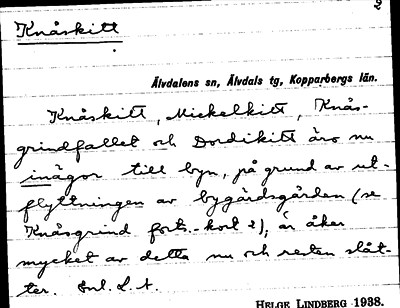 2
Knåskitt
Älvdalens sn, Älvdals tg, Kopparbergs län.
Knåskitt, Mickelkitt, Knås-
grindfallet och Dordikitt äro nu
inägor till byn, på grund av ut-
flyttningen av bygårdsgården (se
Knåsgrind forts.-kort 2), är åker
mycket av detta nu och resten slåt-
ter. Enl. L. A.
HELGE LINDBERG 1938.